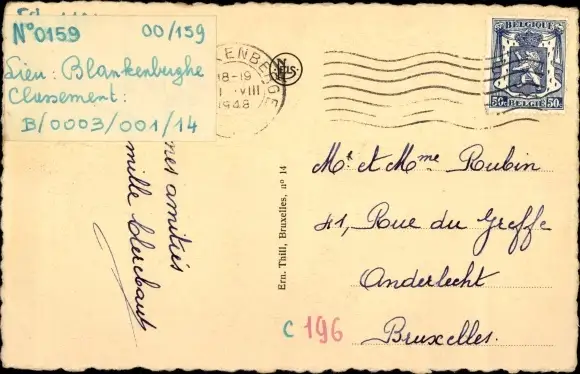 N°0159 00/159
Lieu: Blankenburghe
Classement:
B/0003/001/14
KENBERGE
18-19
VIII
1948
NELS
BELGIQUE
50c 50c
BELGIË
mes amitiés
mille
Ern. Thill, Bruxelles, n° 14
Mr et Mme Rubin
41, Rue du Greffe
Anderlecht
Bruxelles.
C 196